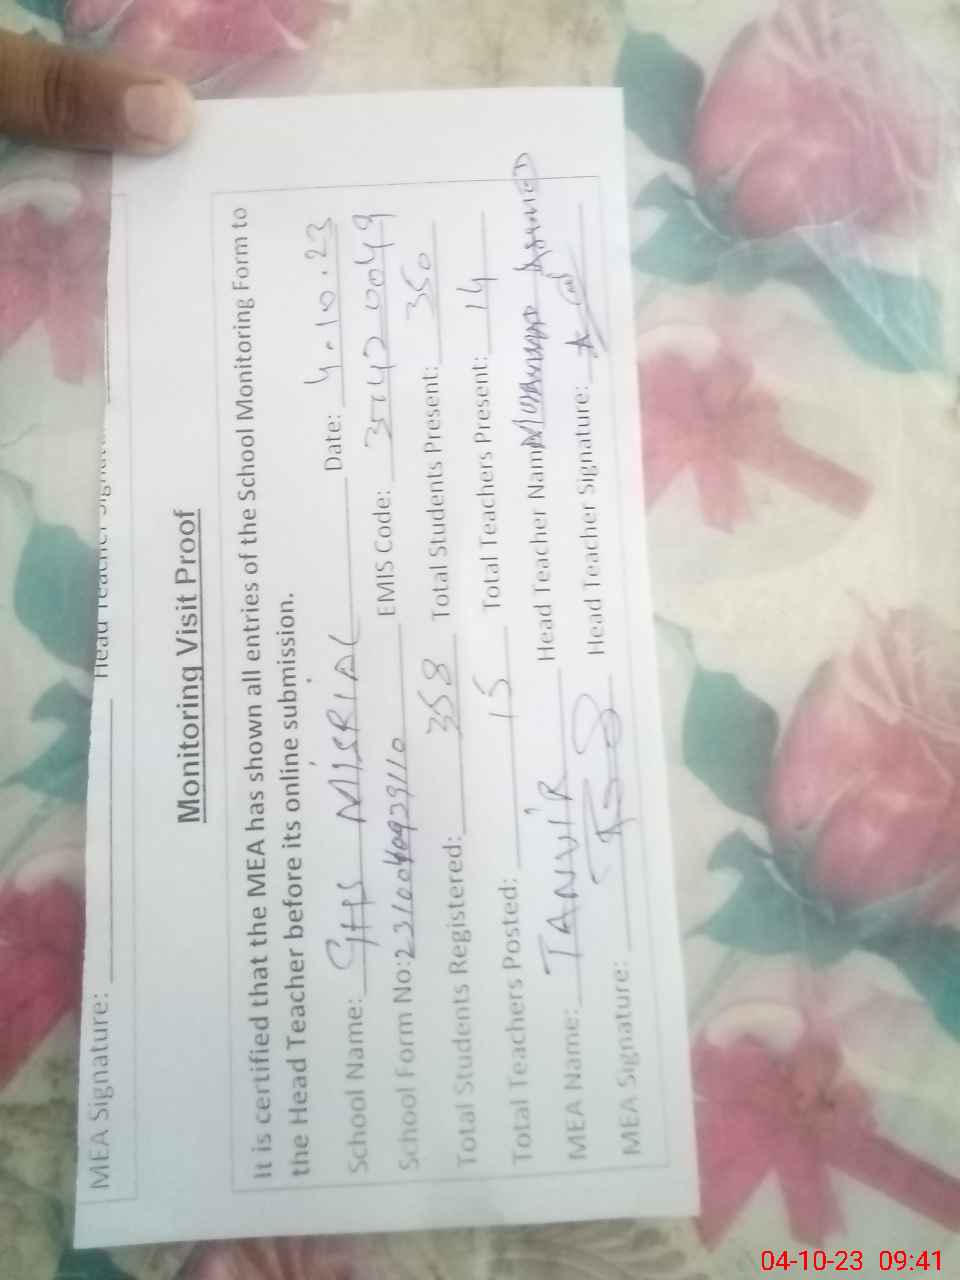 MEA Signature: Head Teacher Signature
Monitoring Visit Proof
It is certified that the MEA has shown all entries of the School Monitoring Form to
the Head Teacher before its online submission.
School Name: GHS MISRIAL Date: 4.10.23
School Form No: EMIS Code:
Total Students Registered: 358 Total Students Present: 350
Total Teachers Posted: 15 Total Teachers Present: 14
MEA Name: TANVIR Head Teacher Name
MEA Signature: Head Teacher Signature:
04-10-23 09:41